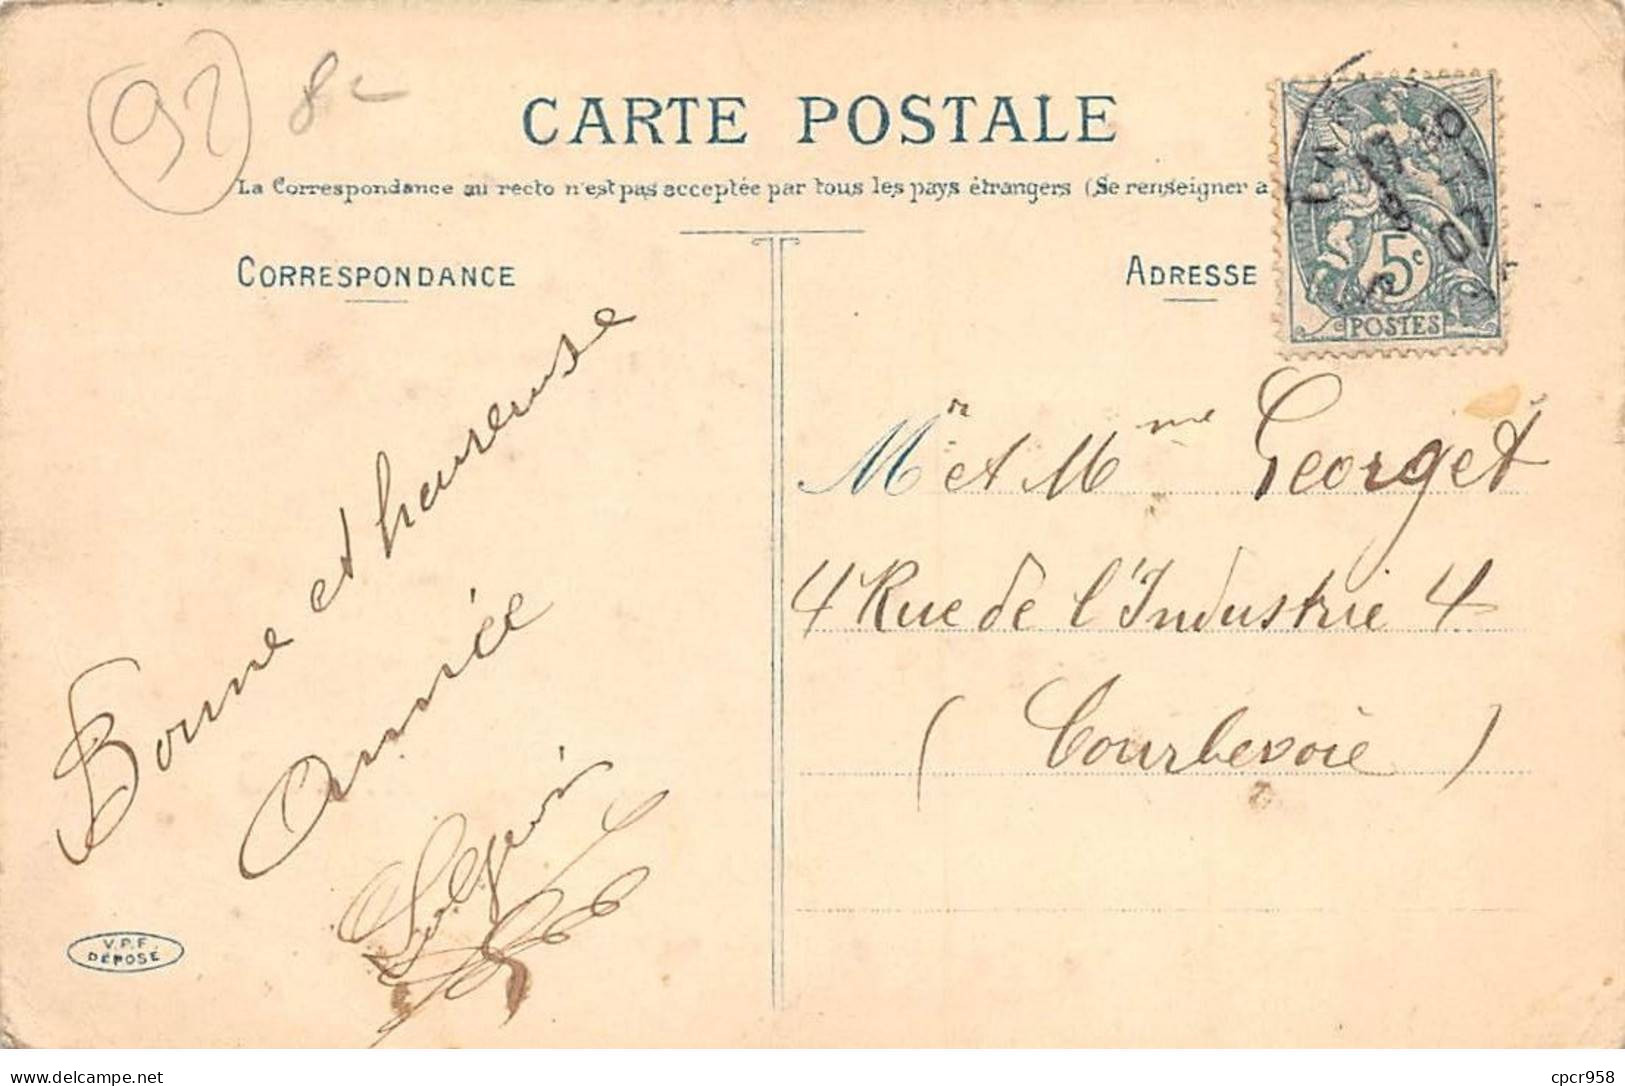 92
8
CARTE POSTALE
La Correspondance au recto n'est pas acceptée par tous les pays étrangers (Se renseigner à
CORRESPONDANCE
ADRESSE
5c
POSTES
Bonne et heureuse
année
Mr et Mme Georget
4 Rue de l'Industrie 4
(Courbevoie)
V.P.F.
DÉPOSÉ
delcampe.net
cpcr958